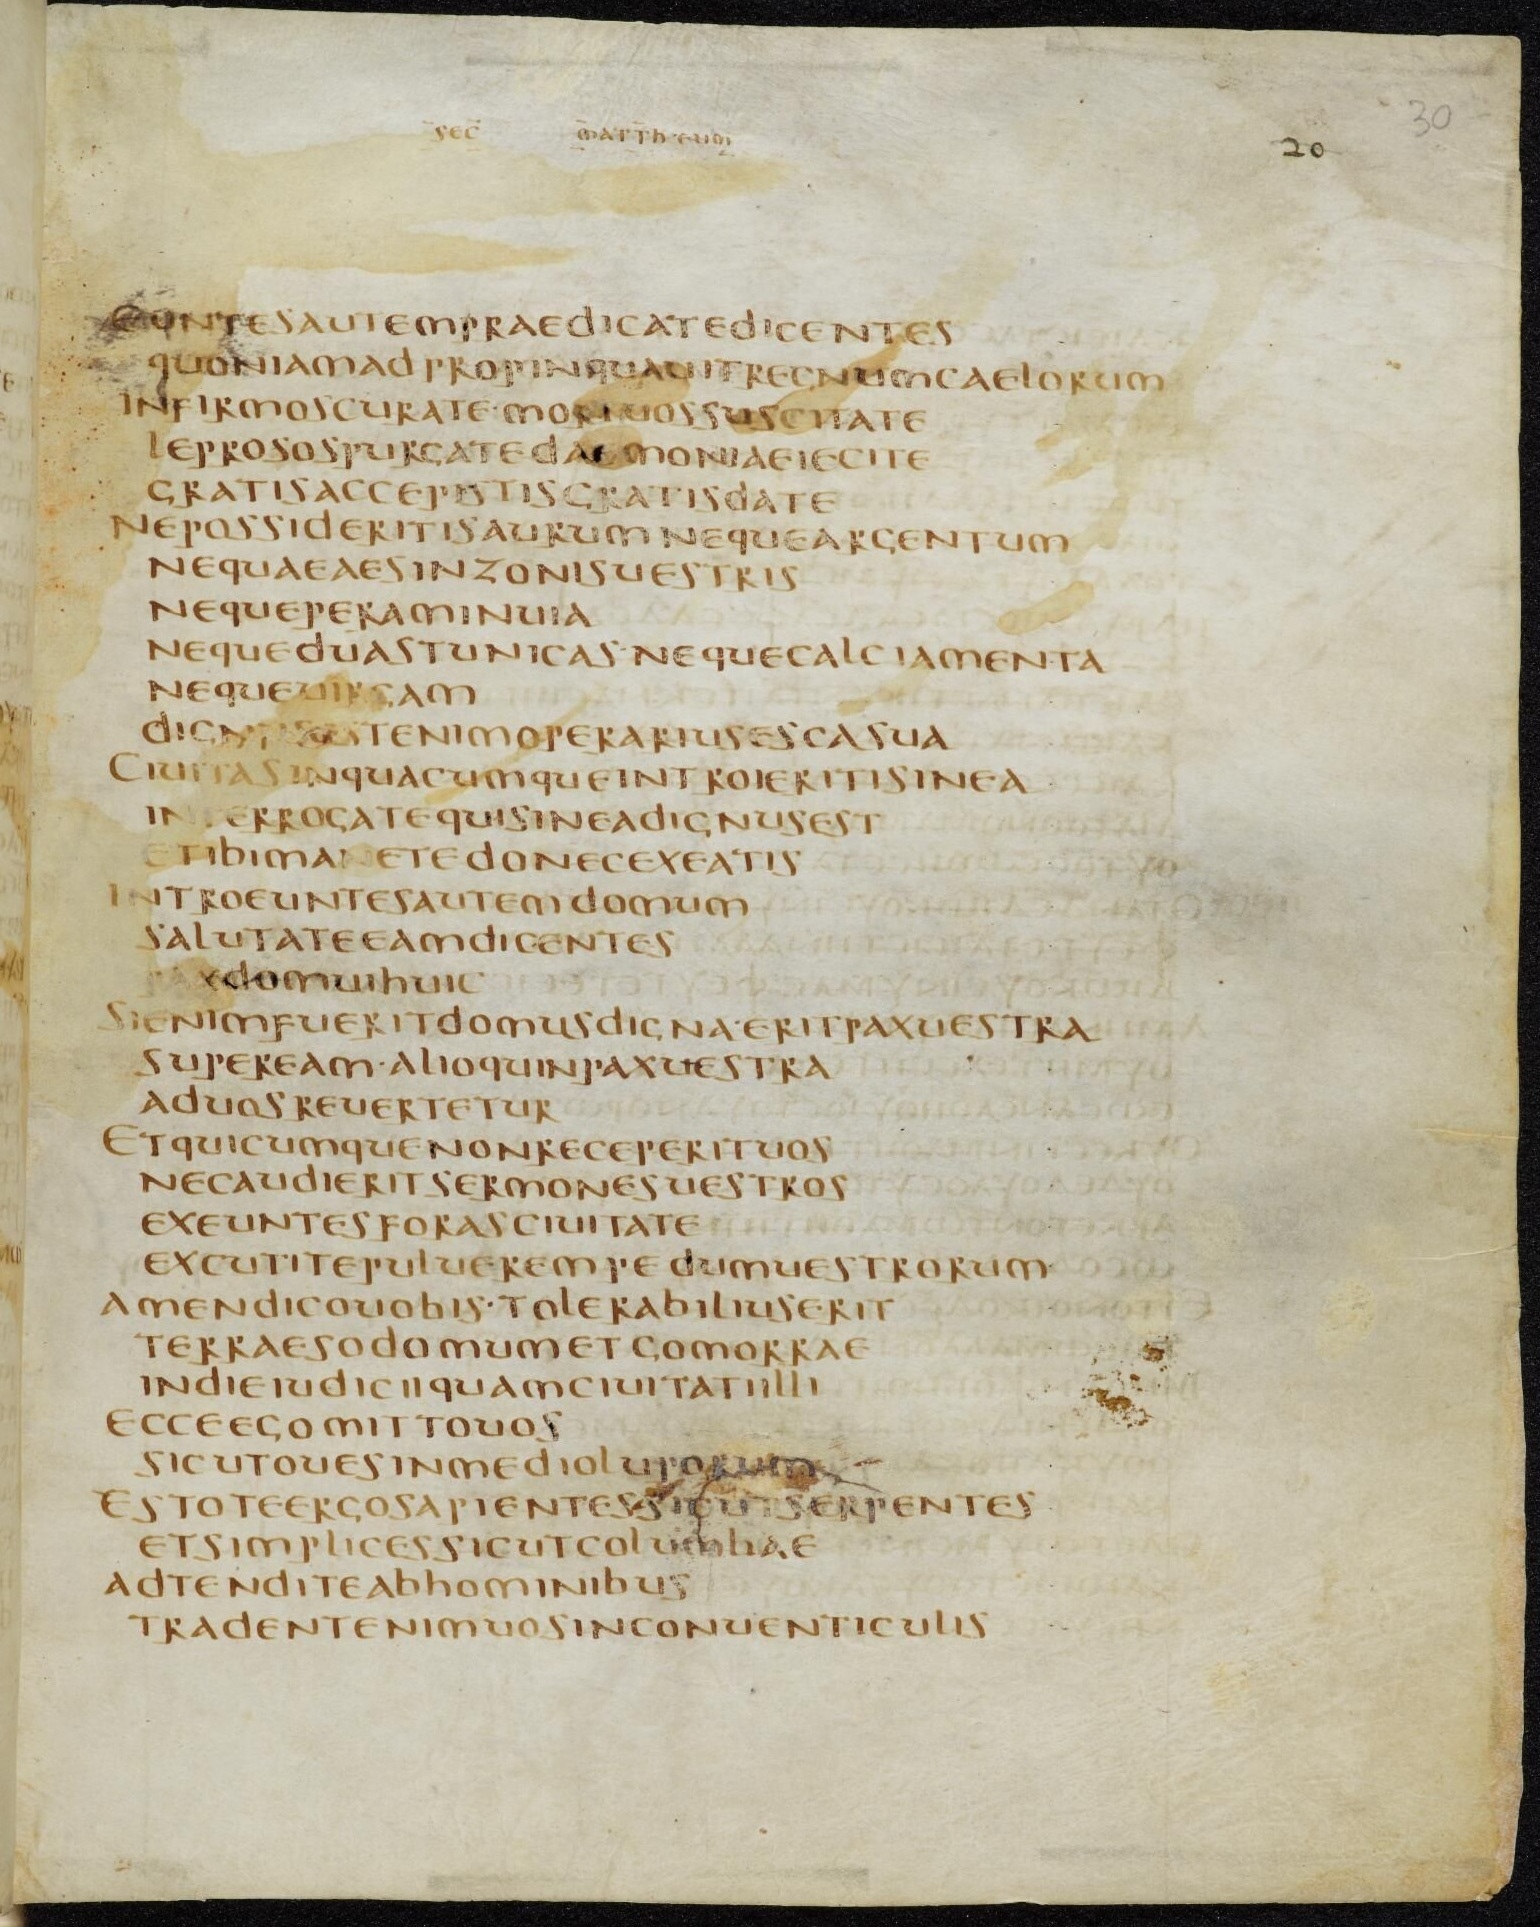 30
sec mattheum
20
EUNTESAUTEMPRAEDICATEDICENTES
QUONIAMADPROPINQUAUITREGNUMCAELORUM
INFIRMOSCURATE·MORTUOSSUSCITATE
LEPROSOSPURGATEDAEMONIAEIECITE
GRATISACCEPISTISGRATISDATE
NEPOSSIDERITISAURUMNEQUEARGENTUM
NEQUAEAESINZONISUESTRIS
NEQUEPERAMINUIA
NEQUEDUASTUNICAS·NEQUECALCIAMENTA
NEQUEUIRGAM
DIGNUSESTENIMOPERARIUSESCASUA
CIUITASINQUACUMQUEINTROIERITISINEA
INTERROGATEQUISINEADIGNUSEST
ETIBIMANETEDONECEXEATIS
INTROEUNTESAUTEMDOMUM
SALUTATEEAMDICENTES
PAXDOMUIHUIC
SIENIMFUERITDOMUSDIGNA·ERITPAXUESTRA
SUPEREAM·ALIOQUINPAXUESTRA
ADUOSREUERTETUR
ETQUICUMQUENONRECEPERITUOS
NECAUDIERITSERMONESUESTROS
EXEUNTESFORASCIUITATE
EXCUTITEPULUEREMPEDUMUESTRORUM
AMENDICOUOBIS·TOLERABILIUSERIT
TERRAESODOMUMETGOMORRAE
INDIEIUDICIIQUAMCIUITATIILLI
ECCEEGOMITTOUOS
SICUTOUESINMEDIOLUPORUM
ESTOTEERGOSAPIENTESSICUTSERPENTES
ETSIMPLICESSICUTCOLUMBAE
ADTENDITEABHOMINIBUS
TRADENTENIMUOSINCONUENTICULIS